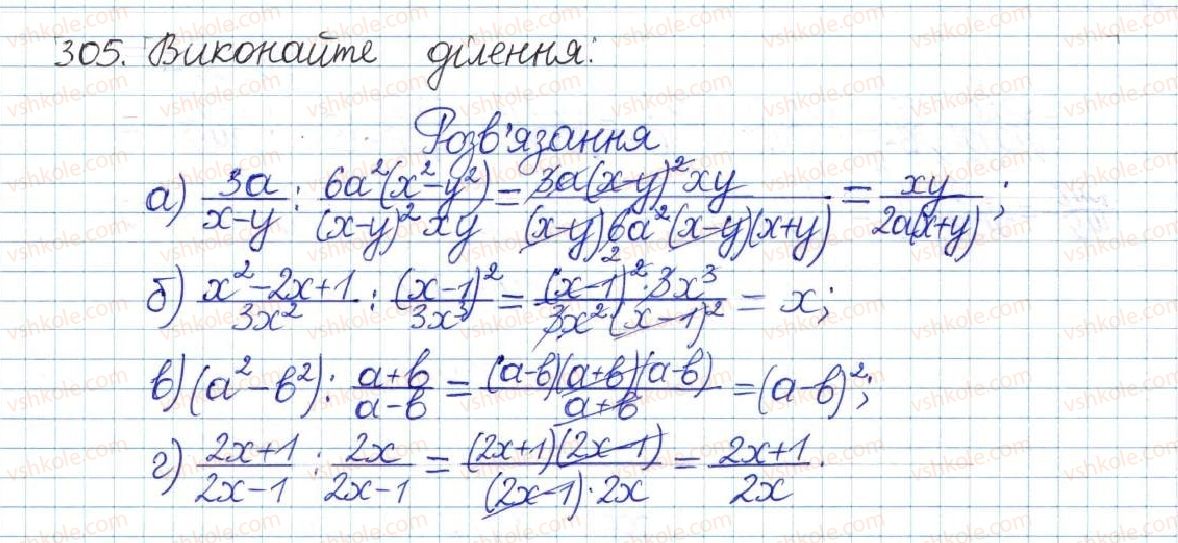 305. Виконайте ділення:
Розв'язання
а) 3a/(x-y) : 6a²(x²-y²)/((x-y)²xy) = 3a(x-y)²xy/((x-y)6a²(x-y)(x+y)) = xy/(2a(x+y));
б) (x²-2x+1)/(3x²) : (x-1)²/(3x³) = (x-1)²·3x³/(3x²·(x-1)²) = x;
в) (a²-в²) : (a+в)/(a-в) = (a-в)(a+в)(a-в)/(a+в) = (a-в)²;
г) (2x+1)/(2x-1) : 2x/(2x-1) = (2x+1)(2x-1)/((2x-1)·2x) = (2x+1)/(2x).
vshkole.com